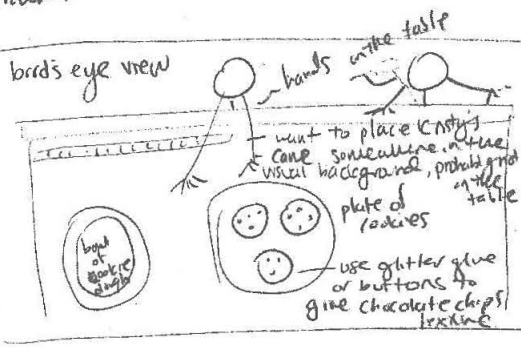 bird's eye view
hands on the table
want to place Kristy's
cane somewhere in the
visual background, probably not
on the
table
bowl
of
cookie
dough
plate of
cookies
use glitter glue
or buttons to
give chocolate chips
texture